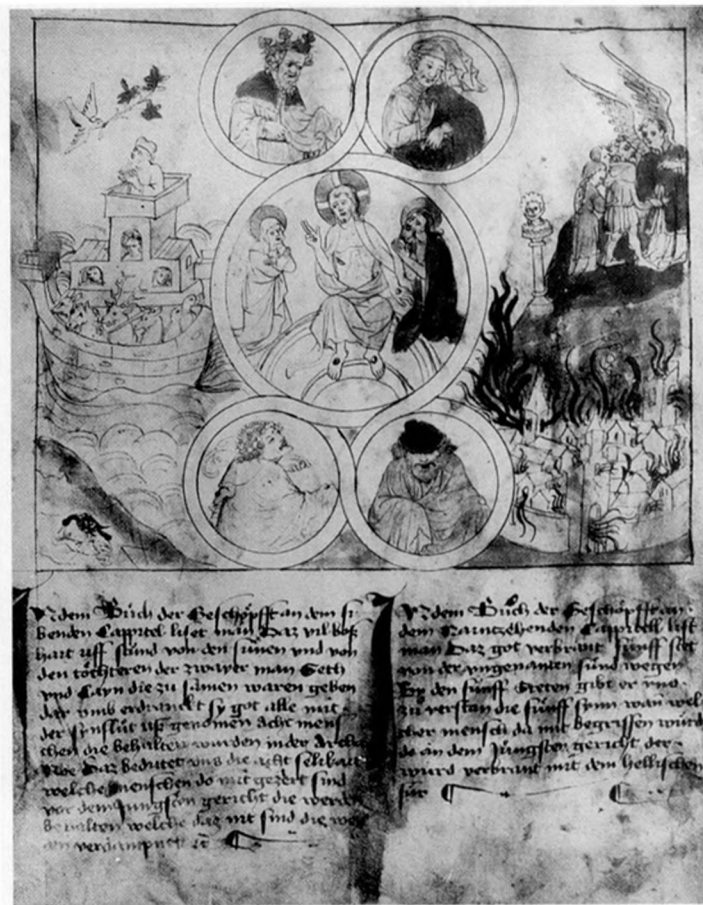 In dem Buch der Geschöpfft an dem si
benden Cappitel liset man Daz vil boß
hart uff stund von den sünen und von
den töchteren der zwayer man Seth
vnd Cayn die zu samen waren geben
dar vmb erdranckt sy got alle mit
der synflut uß genomen acht mens
chen die behalten wurden in der Arch
Noe Daz bedütet vns die acht selikait
welche menschen do mit geziert sind
vor dem Jungsten gericht die werden
behalten welche daz nit sind die wer
den verdampnet
In dem Buch der Geschöpfft an
dem Nüntzehenden Cappitell list
man Daz got verbrant fünff stet
von der vngenanten sünd wegen
By den fünff steten gibt er vns
zu verstan die fünff synn wan wel
cher mensch da mit begriffen würd
do an dem Jüngsten gericht der
würd verbrant mit dem hellischen
für